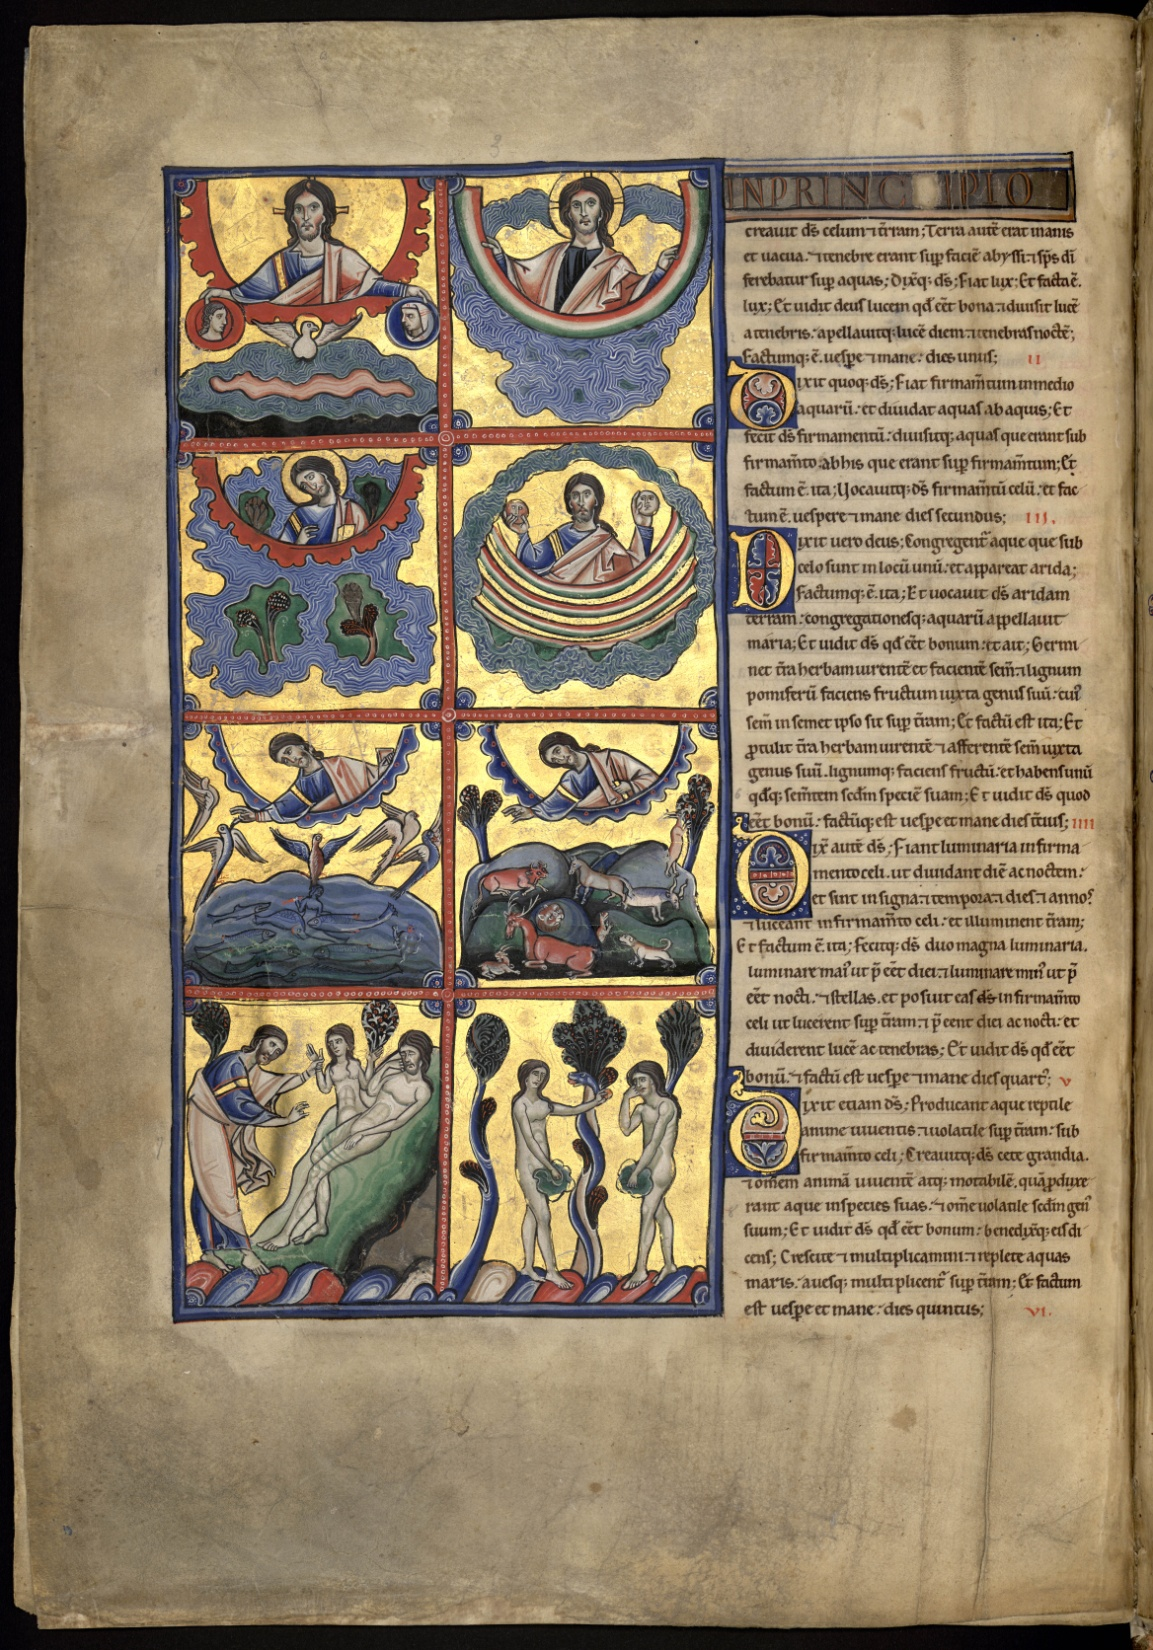 INPRINCIPIO
creauit dſ celum ⁊ t̄ram; Terra autē erat inanis
et uacua. ⁊ tenebre erant ſup̄ faciē abyſſi: ⁊ ſp̄s dī
ferebatur ſup̄ aquas; Dixq; dſ; Fiat lux; Et facta ē.
lux; Et uidit deuſ lucem qd̄ eēt bona: ⁊ diuiſit lucē
a tenebris. apellauitq; lucē diem: ⁊ tenebras noctē;
Factumq; ē. ueſpe ⁊ mane: dies unuſ; II
Dixit quoq; dſ; Fiat firmam̄tum in medio
aquarū: et diuidat aquaſ ab aquiſ; Et
fecit dſ firmamentū: diuiſitq; aquaſ que erant ſub
firmam̄to: ab hiſ que erant ſup̄ firmam̄tum; Et
factum ē. ita; Uocauitq; dſ firmam̄tū celū: et fac
tum ē. ueſpere ⁊ mane dieſ ſecunduſ; III.
Dixit uero deuſ; Congregent̄ aque que ſub
celo ſunt in locū unū: et appareat arida;
Factumq; ē. ita; Et uocauit dſ aridam
terram: congregationeſq; aquarū appellauit
maria; Et uidit dſ qd̄ eēt bonum: et ait; Germi
net t̄ra herbam uirentē et facientē ſem̄: ⁊ lignum
pomiferū facienſ fructum iuxta genuſ ſuū: cuiꝰ
ſem̄ in ſemet ipſo ſit ſup̄ t̄ram; Et factū eſt ita; Et
ꝓtulit t̄ra herbam uirentē ⁊ afferentē ſem̄ iuxta
genuſ ſuū. lignumq; facienſ fructū: et habenſ unū
qdq; ſem̄tem ſcdm̄ ſpeciē ſuam; Et uidit dſ quod
eēt bonū: factūq; eſt ueſpe et mane dieſ t̄tiuſ; IIII
Dix̄ autē dſ; Fiant luminaria in firma
mento celi. ut diuidant diē ac noctem:
et ſint in ſigna: ⁊ tempora: ⁊ dieſ: ⁊ annoſ
⁊ luceant in firmam̄to celi: et illuminent t̄ram;
Et factum ē. ita; Fecitq; dſ duo magna luminaria.
luminare maiꝰ ut p̄ eēt diei: ⁊ luminare minꝰ ut p̄
eēt nocti. ⁊ ſtellas. et poſuit eaſ dſ in firmam̄to
celi ut lucerent ſup̄ t̄ram: ⁊ p̄ eent diei ac nocti: et
diuiderent lucē ac tenebraſ; Et uidit dſ qd̄ eēt
bonū. ⁊ factū eſt ueſpe ⁊ mane dieſ quartꝰ; V
Dixit etiam dſ; Producant aque reptile
anime uiuentiſ ⁊ uolatile ſup̄ t̄ram: ſub
firmam̄to celi; Creauitq; dſ cete grandia.
⁊ omem̄ animā uiuentē atq; motabilē. quā ꝓduxe
rant aque in ſpecieſ ſuas. ⁊ om̄e uolatile ſcdm̄ genꝰ
ſuum; Et uidit dſ qd̄ eēt bonum: benedixq; eiſ di
cenſ; Creſcite ⁊ multiplicamini: ⁊ replete aquas
maris. aueſq; multiplicent̄ ſup̄ t̄ram; Et factum
eſt ueſpe et mane: dieſ quintuſ; VI.